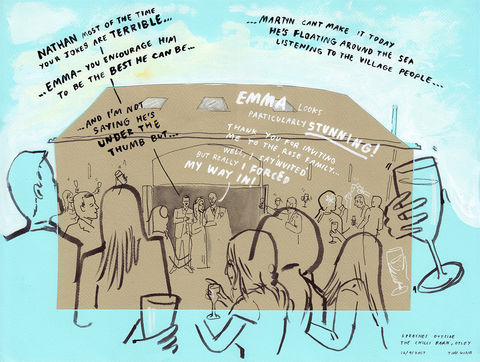 NATHAN MOST OF THE TIME
YOUR JOKES ARE TERRIBLE...
...EMMA- YOU ENCOURAGE HIM
TO BE THE BEST HE CAN BE...
...AND I'M NOT
SAYING HE'S
UNDER THE
THUMB BUT...
...MARTYN CANT MAKE IT TODAY
HE'S FLOATING AROUND THE SEA
LISTENING TO THE VILLAGE PEOPLE...
EMMA LOOKS
PARTICULARLY STUNNING!
THANK YOU FOR INVITING
ME TO THE ROSE FAMILY...
WELL, I SAY 'INVITED'
BUT REALLY I FORCED
MY WAY IN!
SPEECHES OUTSIDE
THE CHILLI BARN, OTLEY